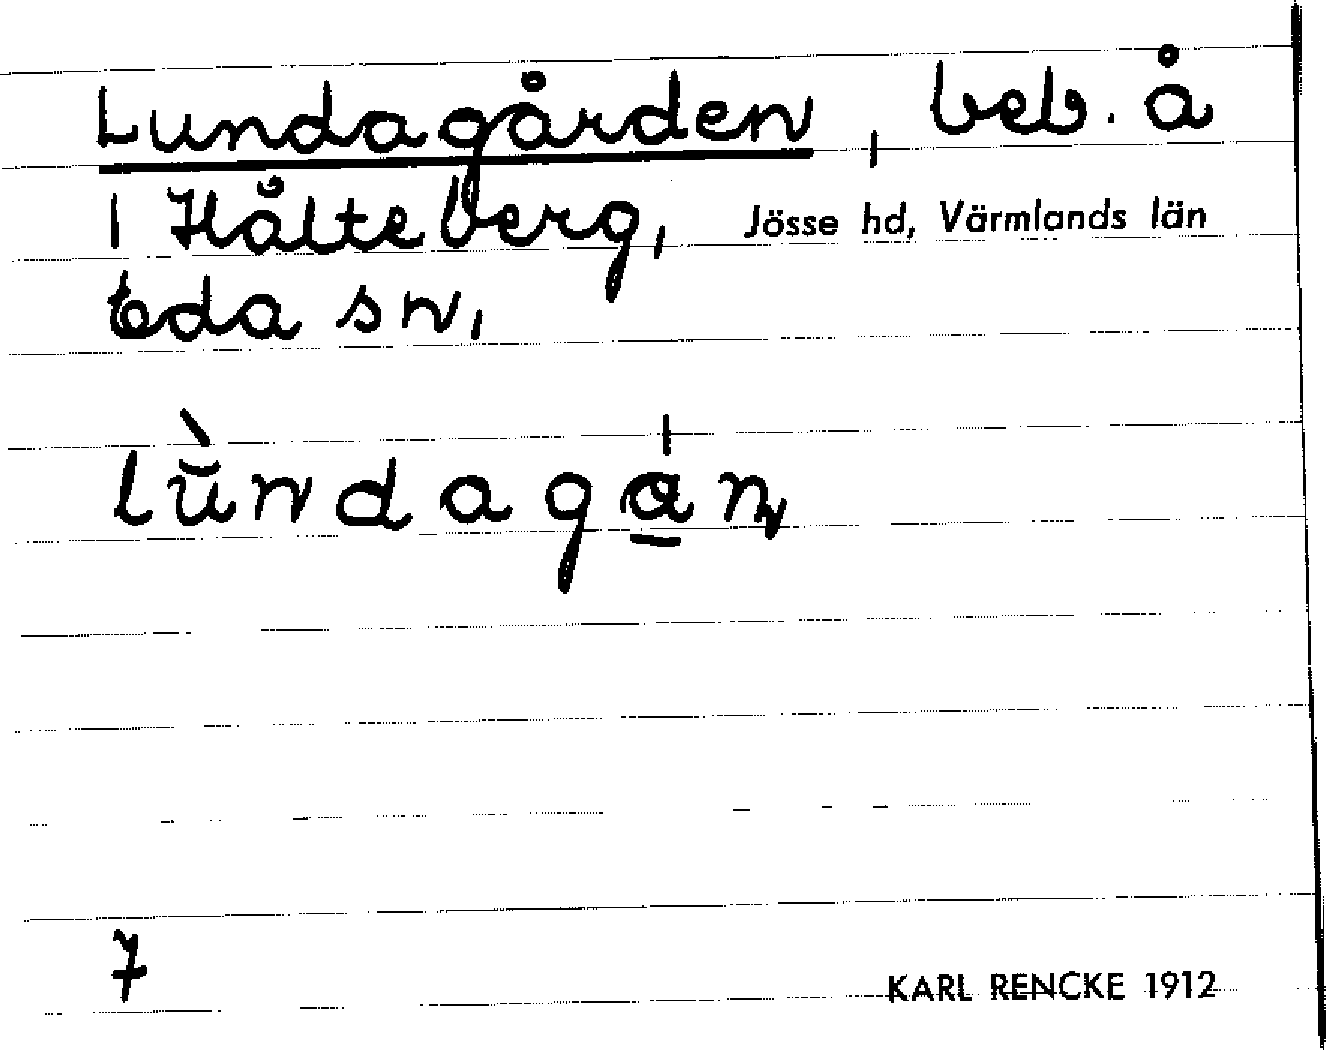 Lundagården, beb. å
1 Hålteberg, Jösse hd, Värmlands län
Eda sn,
lùndagan
7
KARL RENCKE 1912